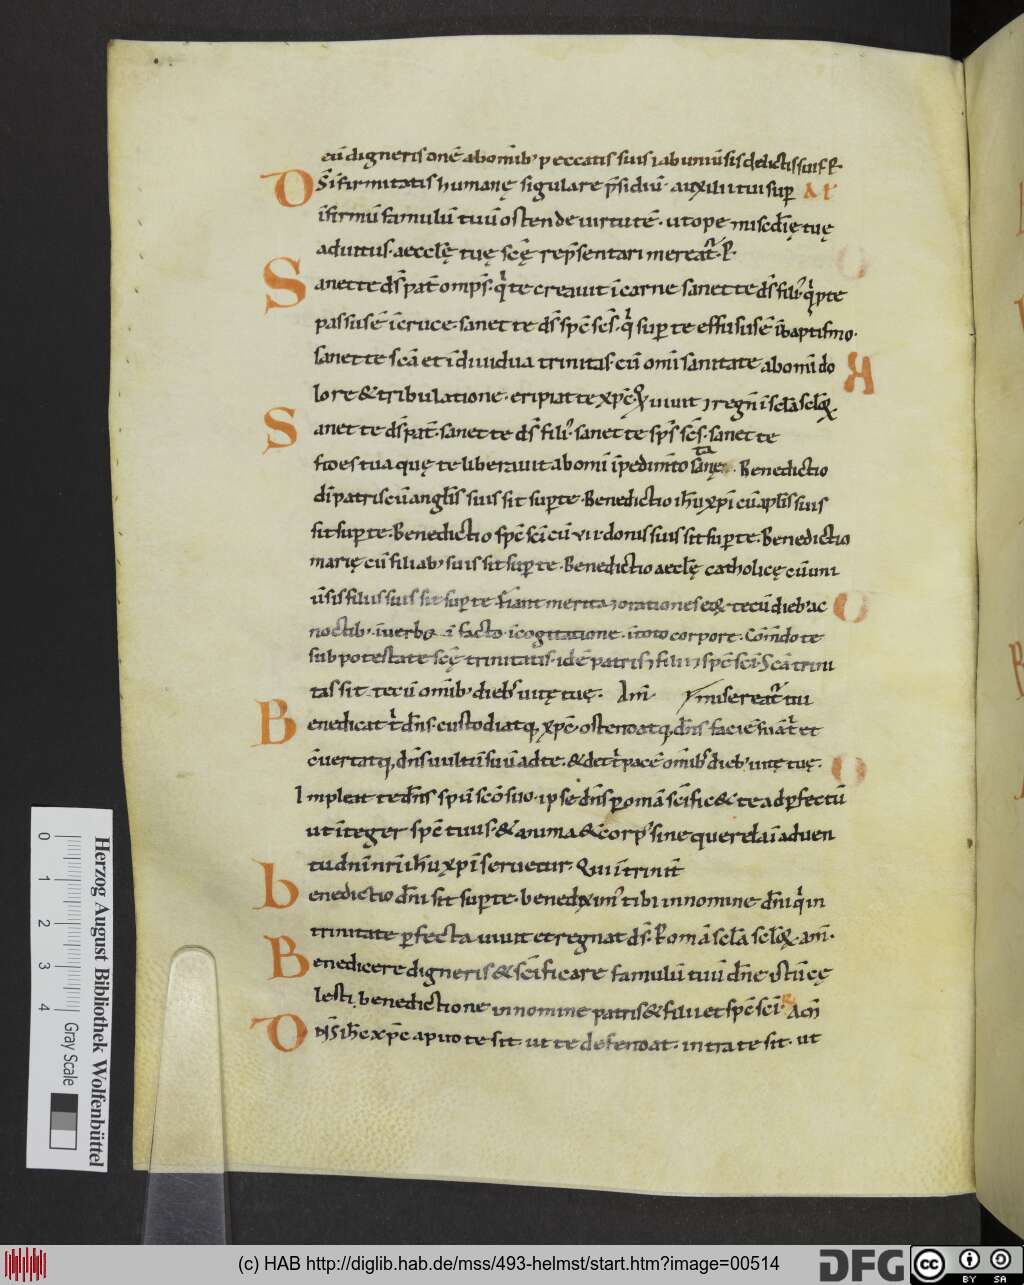 cū digneris onē abomib; peccatis suis ł ab uniūsis delictis suis R
DS̄ īfirmitatis humanę sigulare p̄sidiū auxilii tui sup Aƚ
īfirmū famulū tuū ostende uirtutē. ut ope miscdīę tuę
adiutus. aecclę tuę scę rep̄sentari mereat̄. R
Sanet te ds̄ pat̄ omps̄. q̄ te creauit ī carne sanet te ds̄ fili; q̄ p te
passus ē ī cruce. sanet te ds̄ spc̄ scs̄. q̄ sup te effusus ē ī baptismo.
sanet te scā et īdiuidua trinitas. cū omī sanitate ab omī do
lore & tribulatione. eripiat te xpc̄. q uiuit ⁊ regn̄ ī sclā sclōꝝ
Sanet te ds̄ pat̄. sanet te ds̄ fili; sanet te sps̄ scs̄. sanet te
fides tua quę te liberauit ab omī īpedimto sanę. Benedictio
dī patris cū anglīs suis sit sup te. Benedictio ihū xpī cū aplīs suis
sit sup te. Benedictio spc̄ scī cū vii donis suis sit sup te. Benedictio
marię cū filiab; suis sit sup te. Benedictio aeclę catholicę cū uni
ūsis filiis suis sit sup te. fiant merita ⁊ orationes eoꝝ tecū dieb; ac
noctib; ī uerbo ī facto. ī cogitatione. ī toto corpore. Cōm̄do te
sub potestate scę trinitatis. id ē patris ⁊ filii ⁊ spc̄ scī. Scā trini
tas sit tecū omib; dieb; uitę tuę. Am̄ misereat̄ tui
Benedicat t̄ dn̄s. custodiatq; xpc̄. ostendatq; dn̄s faciē suā t̄ et
c̄uertatq; dn̄s uultū suū ad te. & det t̄ pacē omib; dieb; uitę tuę.
Impleat te dn̄s spū scō suo. ipse dn̄s p omā scīfic& te ad pfectū
ut īteger spc̄ tuus. & anima & corp; sine querela ī aduen
tu dnī nrī ihū xpī seruetur. Qui ī trinit̄
benedictio dn̄i sit sup te. benedixim; tibi in nomine dn̄i q̄ in
trinitate pfecta uiuit et regnat ds̄. P omā sclā sclōꝝ. am̄.
Benedicere digneris & scīficare famulū tuū dn̄e istū cę
lesti benedictione in nomine patris & filii et spc̄ scī. Am̄
Dn̄s ihc̄ xpc̄ apud te sit. ut te defendat. intra te sit. ut
Herzog August Bibliothek Wolfenbüttel
Gray Scale
0 1 2 3 4
(c) HAB http://diglib.hab.de/mss/493-helmst/start.htm?image=00514
DFG
cc BY SA